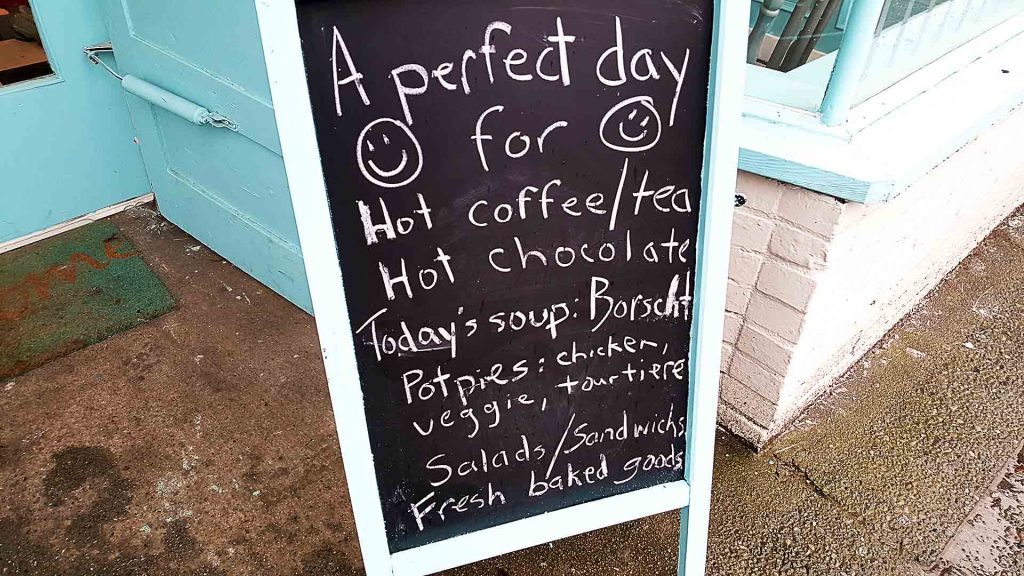 A perfect day
for
Hot coffee/tea
Hot chocolate
Today's soup: Borscht
Potpies: chicken,
veggie, tourtiere
Salads/Sandwichs
Fresh baked goods